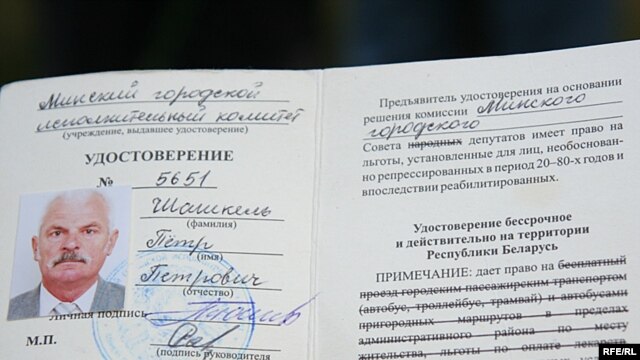 Минский городской
исполнительный комитет
(учреждение, выдавшее удостоверение)
УДОСТОВЕРЕНИЕ
№ 5651
Шашкель
(фамилия)
Пётр
(имя)
Петрович
(отчество)
Личная подпись
М.П.
(подпись руководителя
Предъявитель удостоверения на основании
решения комиссии Минского
городского
Совета народных депутатов имеет право на
льготы, установленные для лиц, необоснован-
но репрессированных в период 20–80-х годов и
впоследствии реабилитированных.
Удостоверение бессрочное
и действительно на территории
Республики Беларусь
ПРИМЕЧАНИЕ: дает право на бесплатный
проезд городским пассажирским транспортом
(автобус, троллейбус, трамвай) и автобусами
пригородных маршрутов в пределах
административного района по месту
жительства, льготы по оплате лекарств
RFE/RL